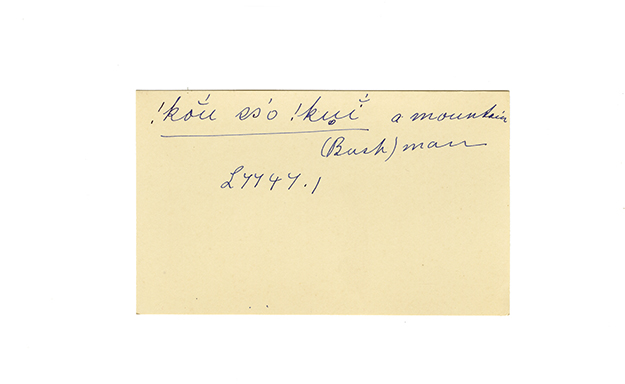 !kŏú ss'o !kụĭ́ a mountain
(Bush)man
L7747.1